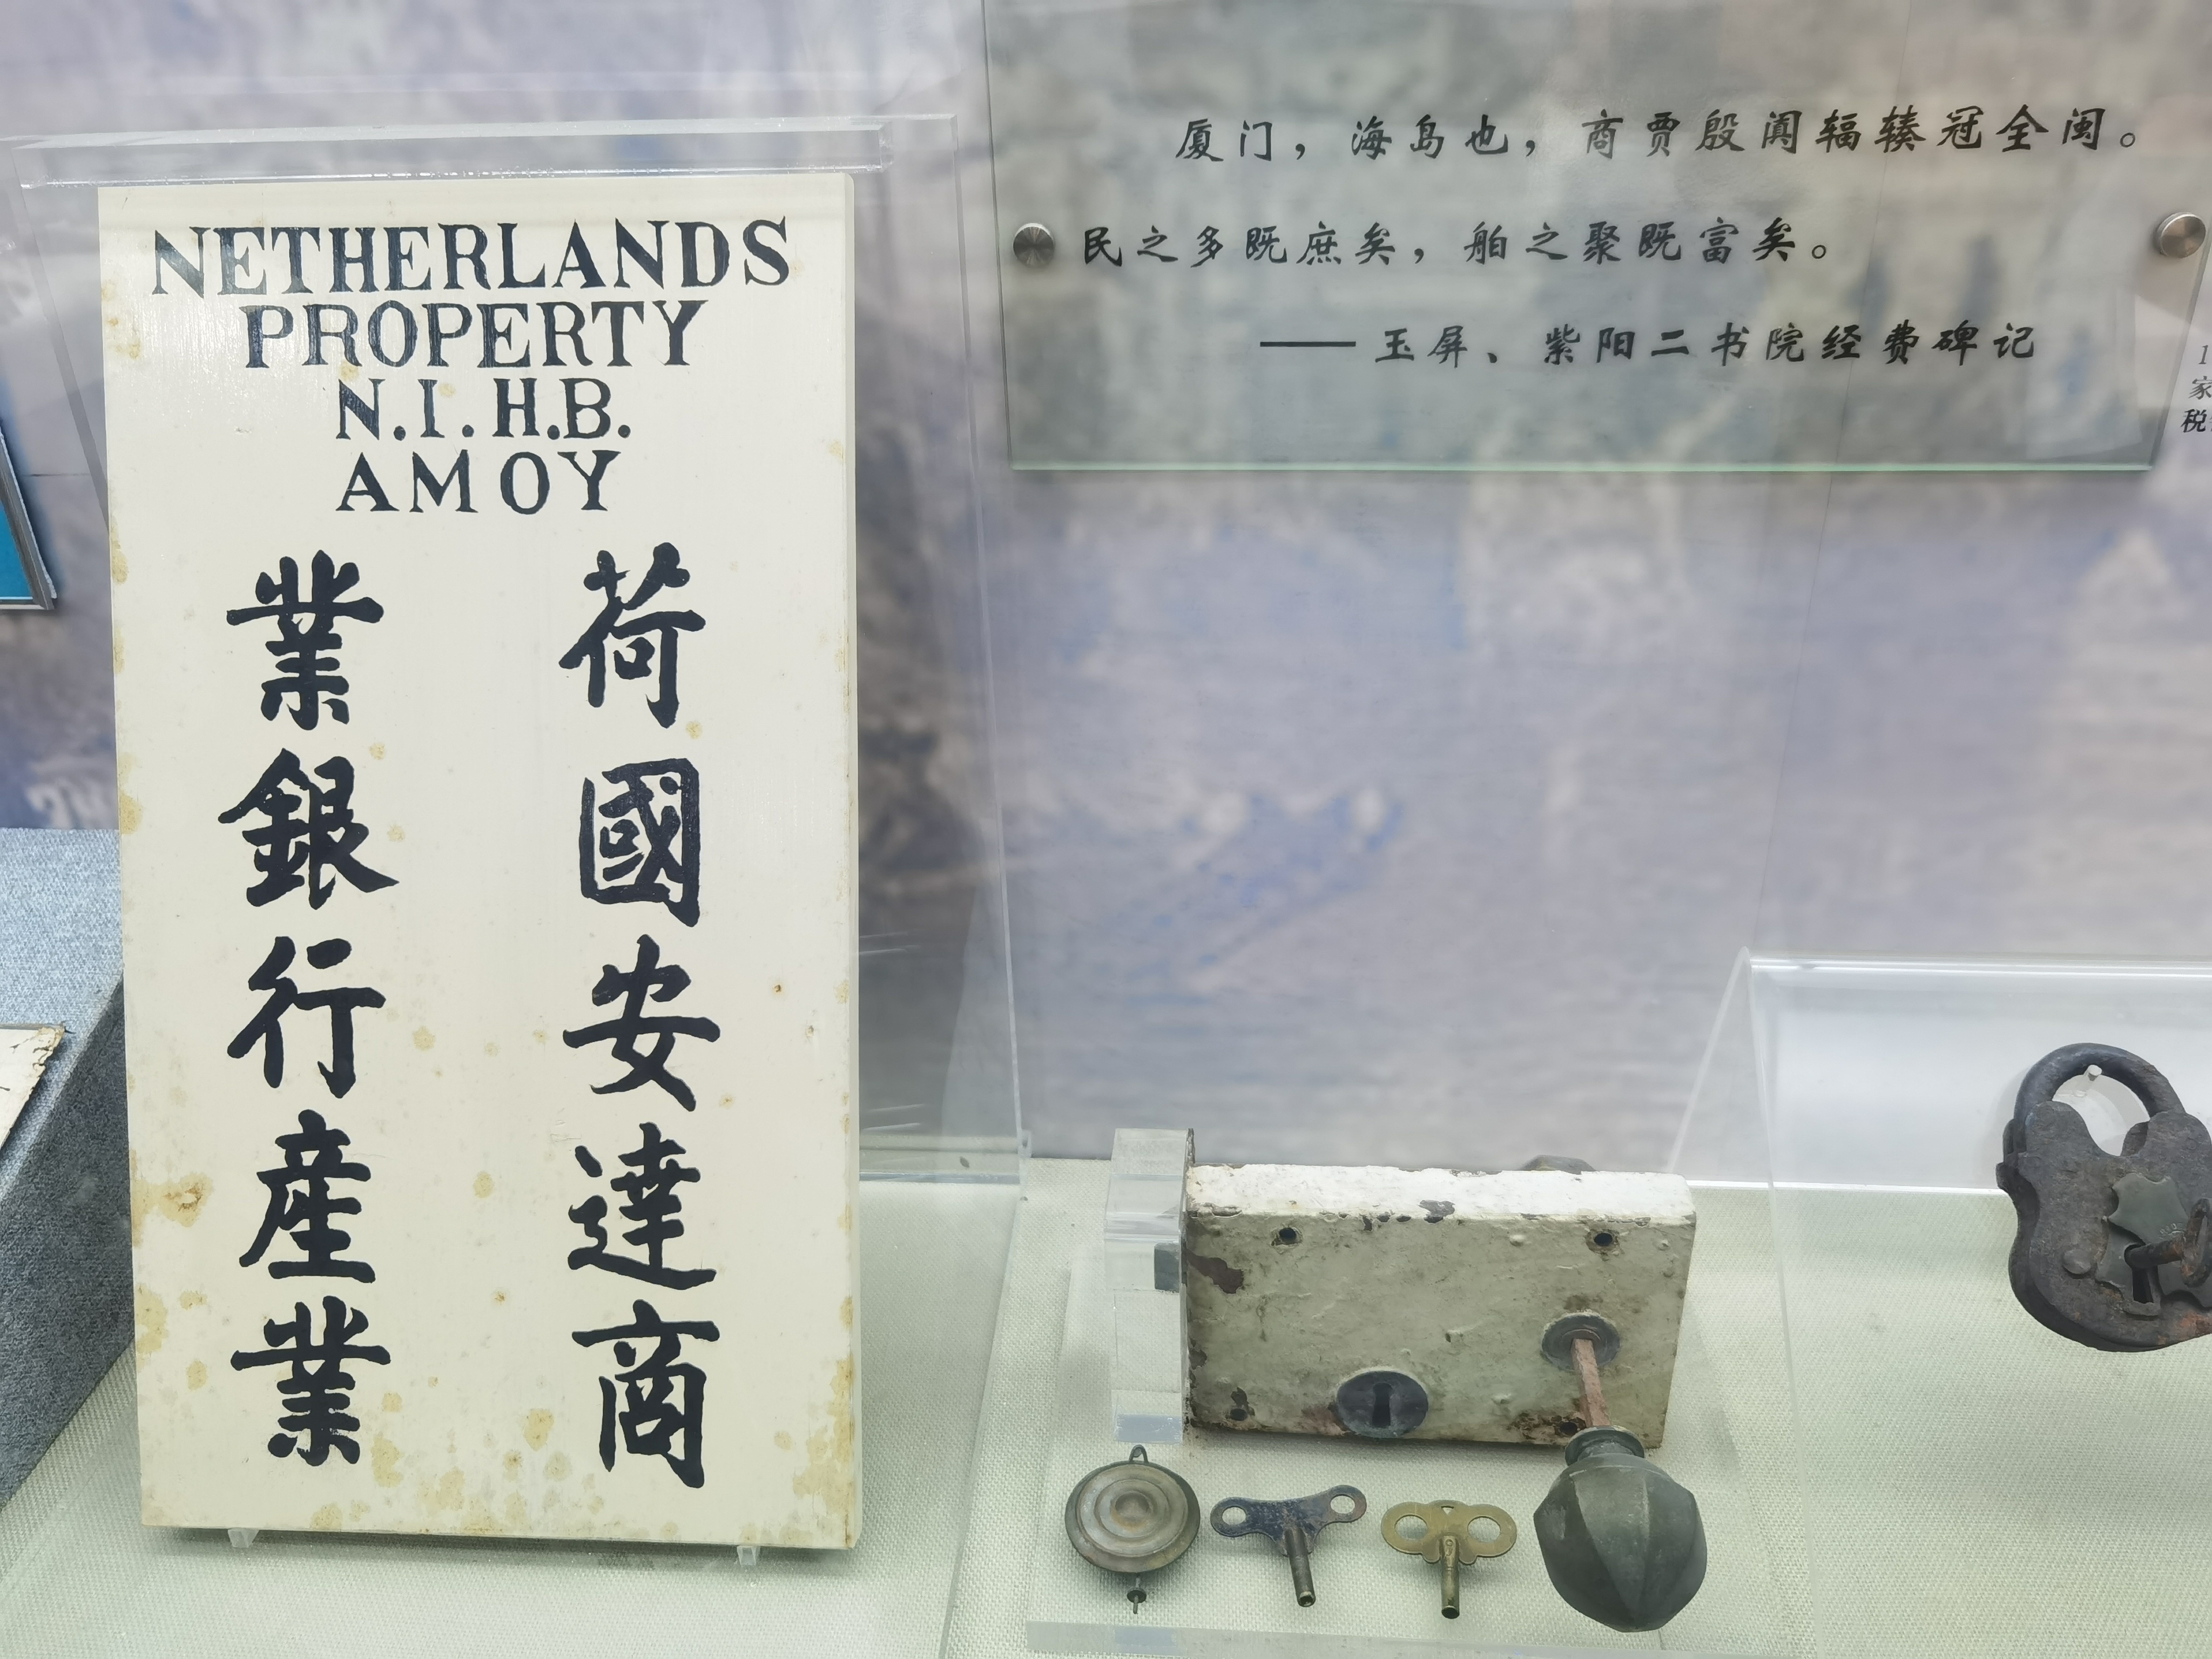 NETHERLANDS
PROPERTY
N.I.H.B.
AMOY
荷國安達商
業銀行産業
厦门，海岛也，商贾殷阗辐辏冠全闽。
民之多既庶矣，舶之聚既富矣。
——玉屏、紫阳二书院经费碑记
1
家
税